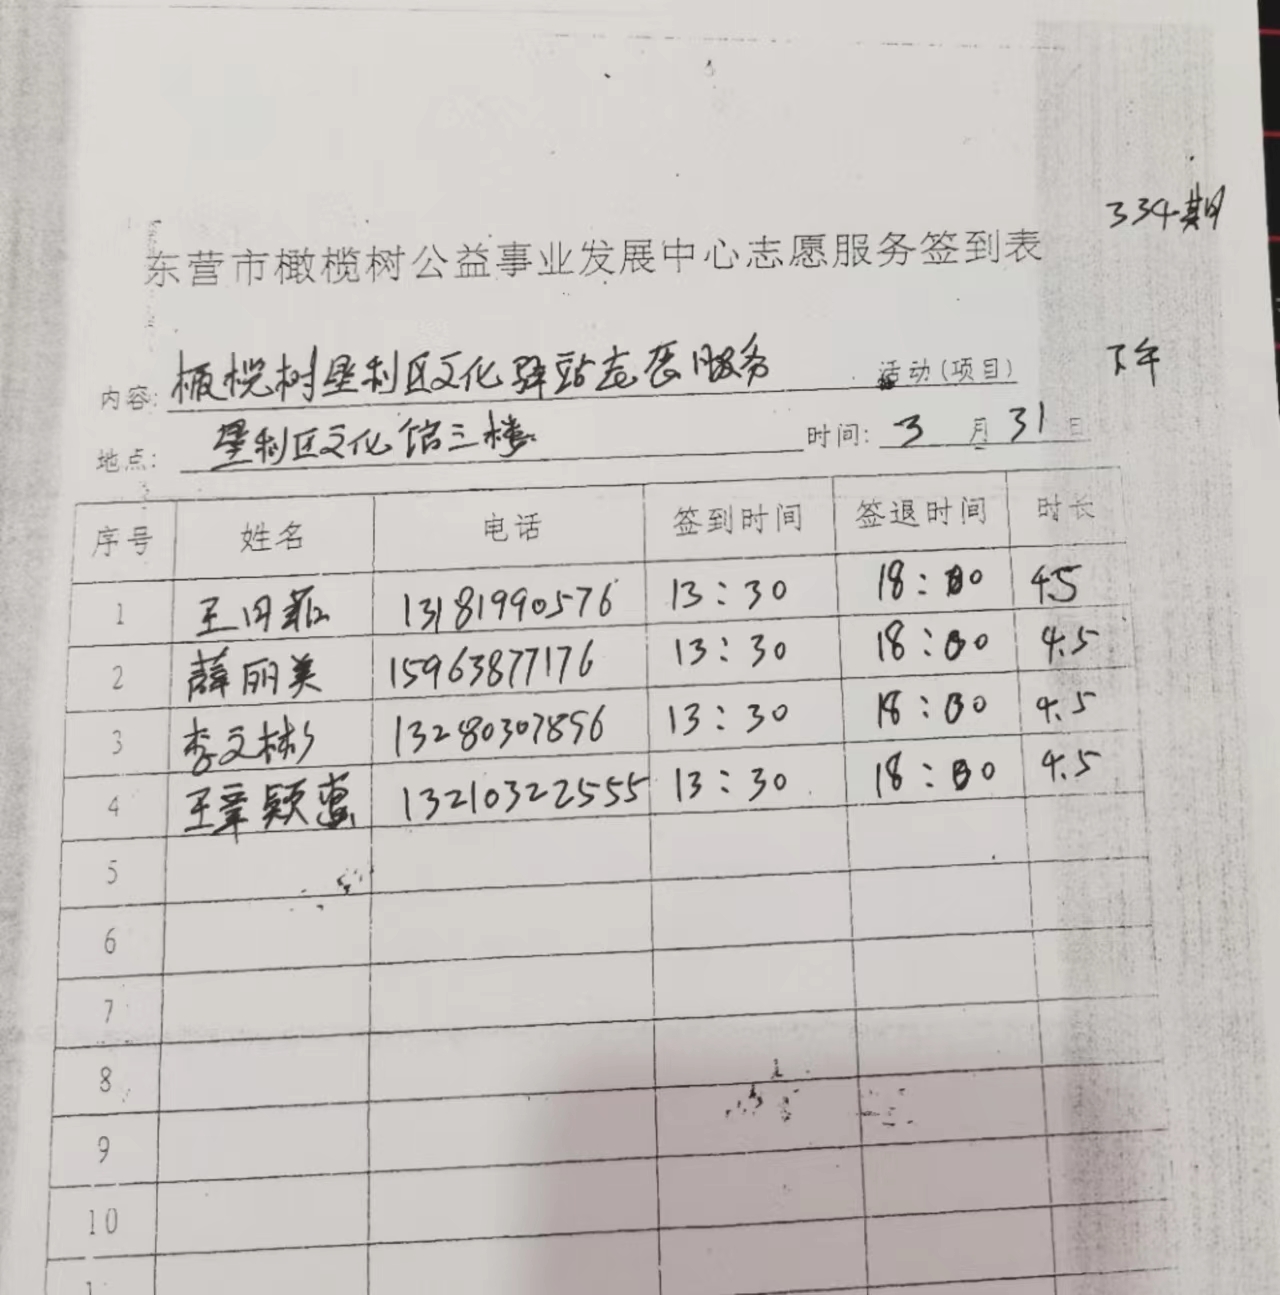 334期
东营市橄榄树公益事业发展中心志愿服务签到表
下午
内容: 橄榄树垦利区文化驿站志愿服务 活动(项目)
地点: 垦利区文化馆三楼 时间: 3月31日
序号 姓名 电话 签到时间 签退时间 时长
1 王 13181990576 13:30 18:00 4.5
2 薛丽美 15963877176 13:30 18:00 4.5
3 李文彬 13280307896 13:30 18:00 4.5
4 王章颖慧 13210322555 13:30 18:00 4.5
5
6
7
8
9
10